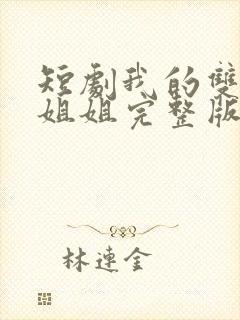 短劇我的雙
姐姐完整版
林連金